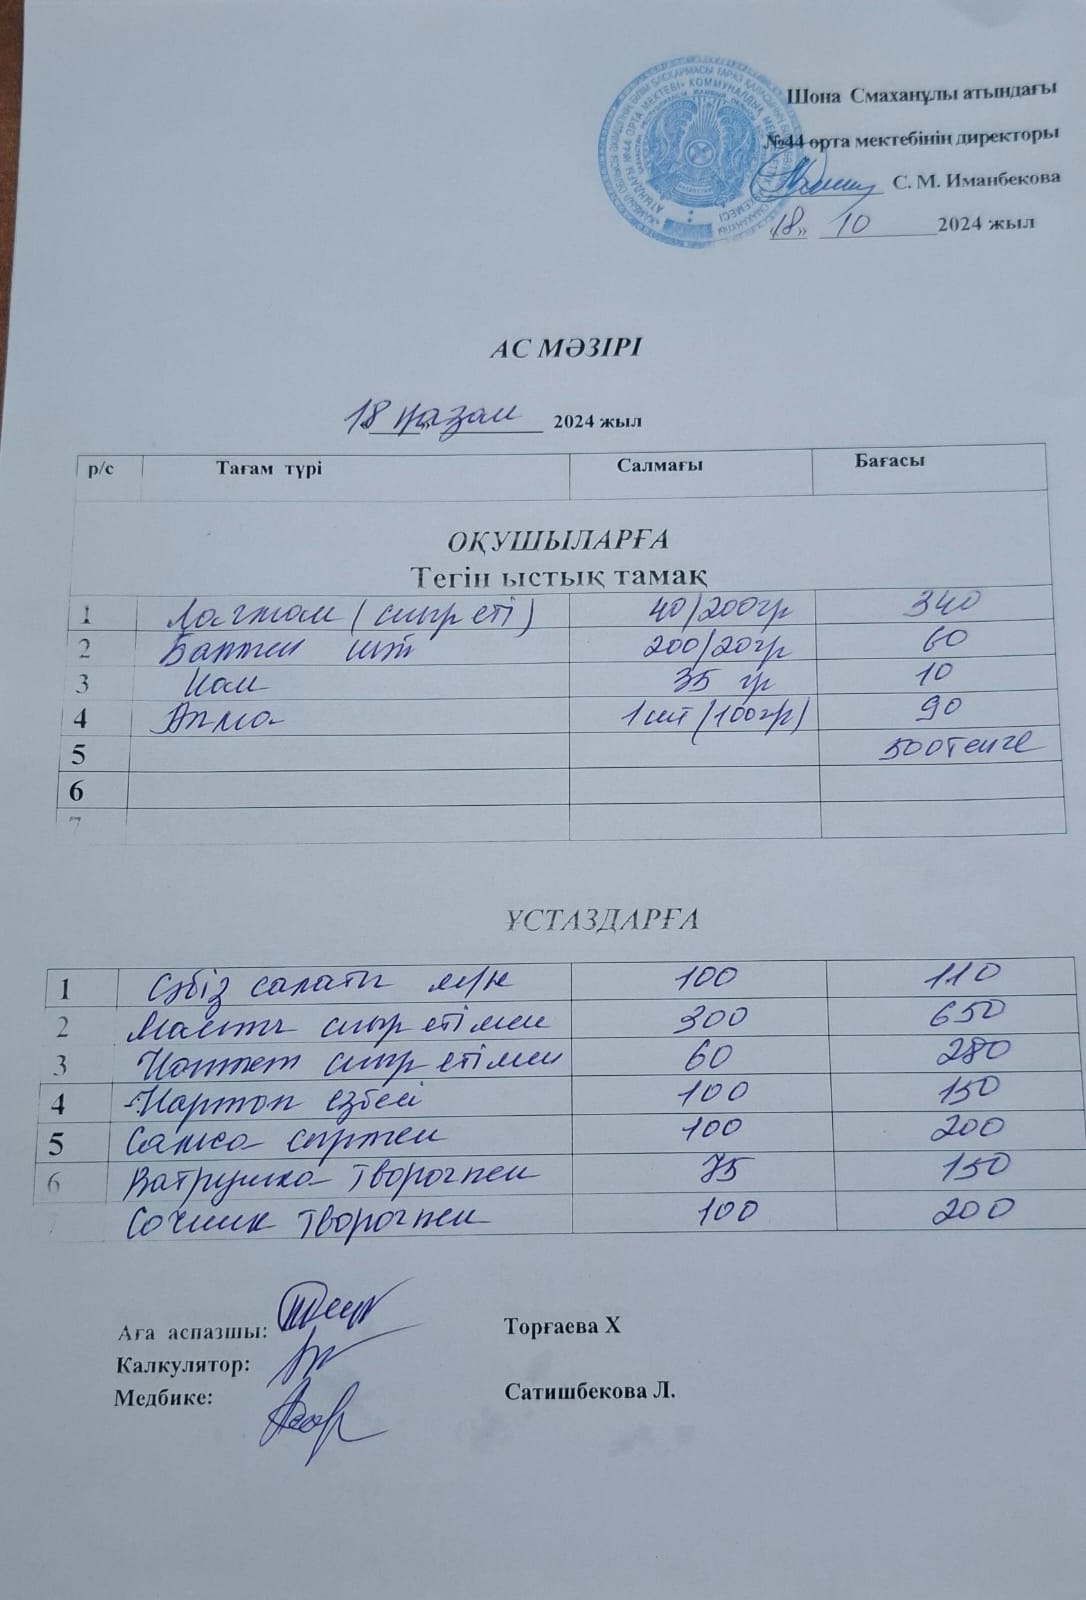 Шона Смаханұлы атындағы
№44 орта мектебінің директоры
С. М. Иманбекова
«18» 10 2024 жыл
АС МӘЗІРІ
18 қазан 2024 жыл
р/с Тағам түрі Салмағы Бағасы
ОҚУШЫЛАРҒА
Тегін ыстық тамақ
1 Лағман (сиыр еті) 40/200гр 340
2 200/20гр 60
3 Нан 35 гр 10
4 Алма 1шт (100гр) 90
5 500теңге
6
7
ҰСТАЗДАРҒА
1 Сәбіз салаты м/н 100 110
2 Манты сиыр етімен 300 650
3 Котлет сиыр етімен 60 280
4 Картоп езбесі 100 150
5 Самса сырмен 100 200
6 Ватрушка творогпен 75 150
7 Сочник творогпен 100 200
Аға аспазшы: Торғаева Х
Калкулятор:
Медбике: Сатишбекова Л.